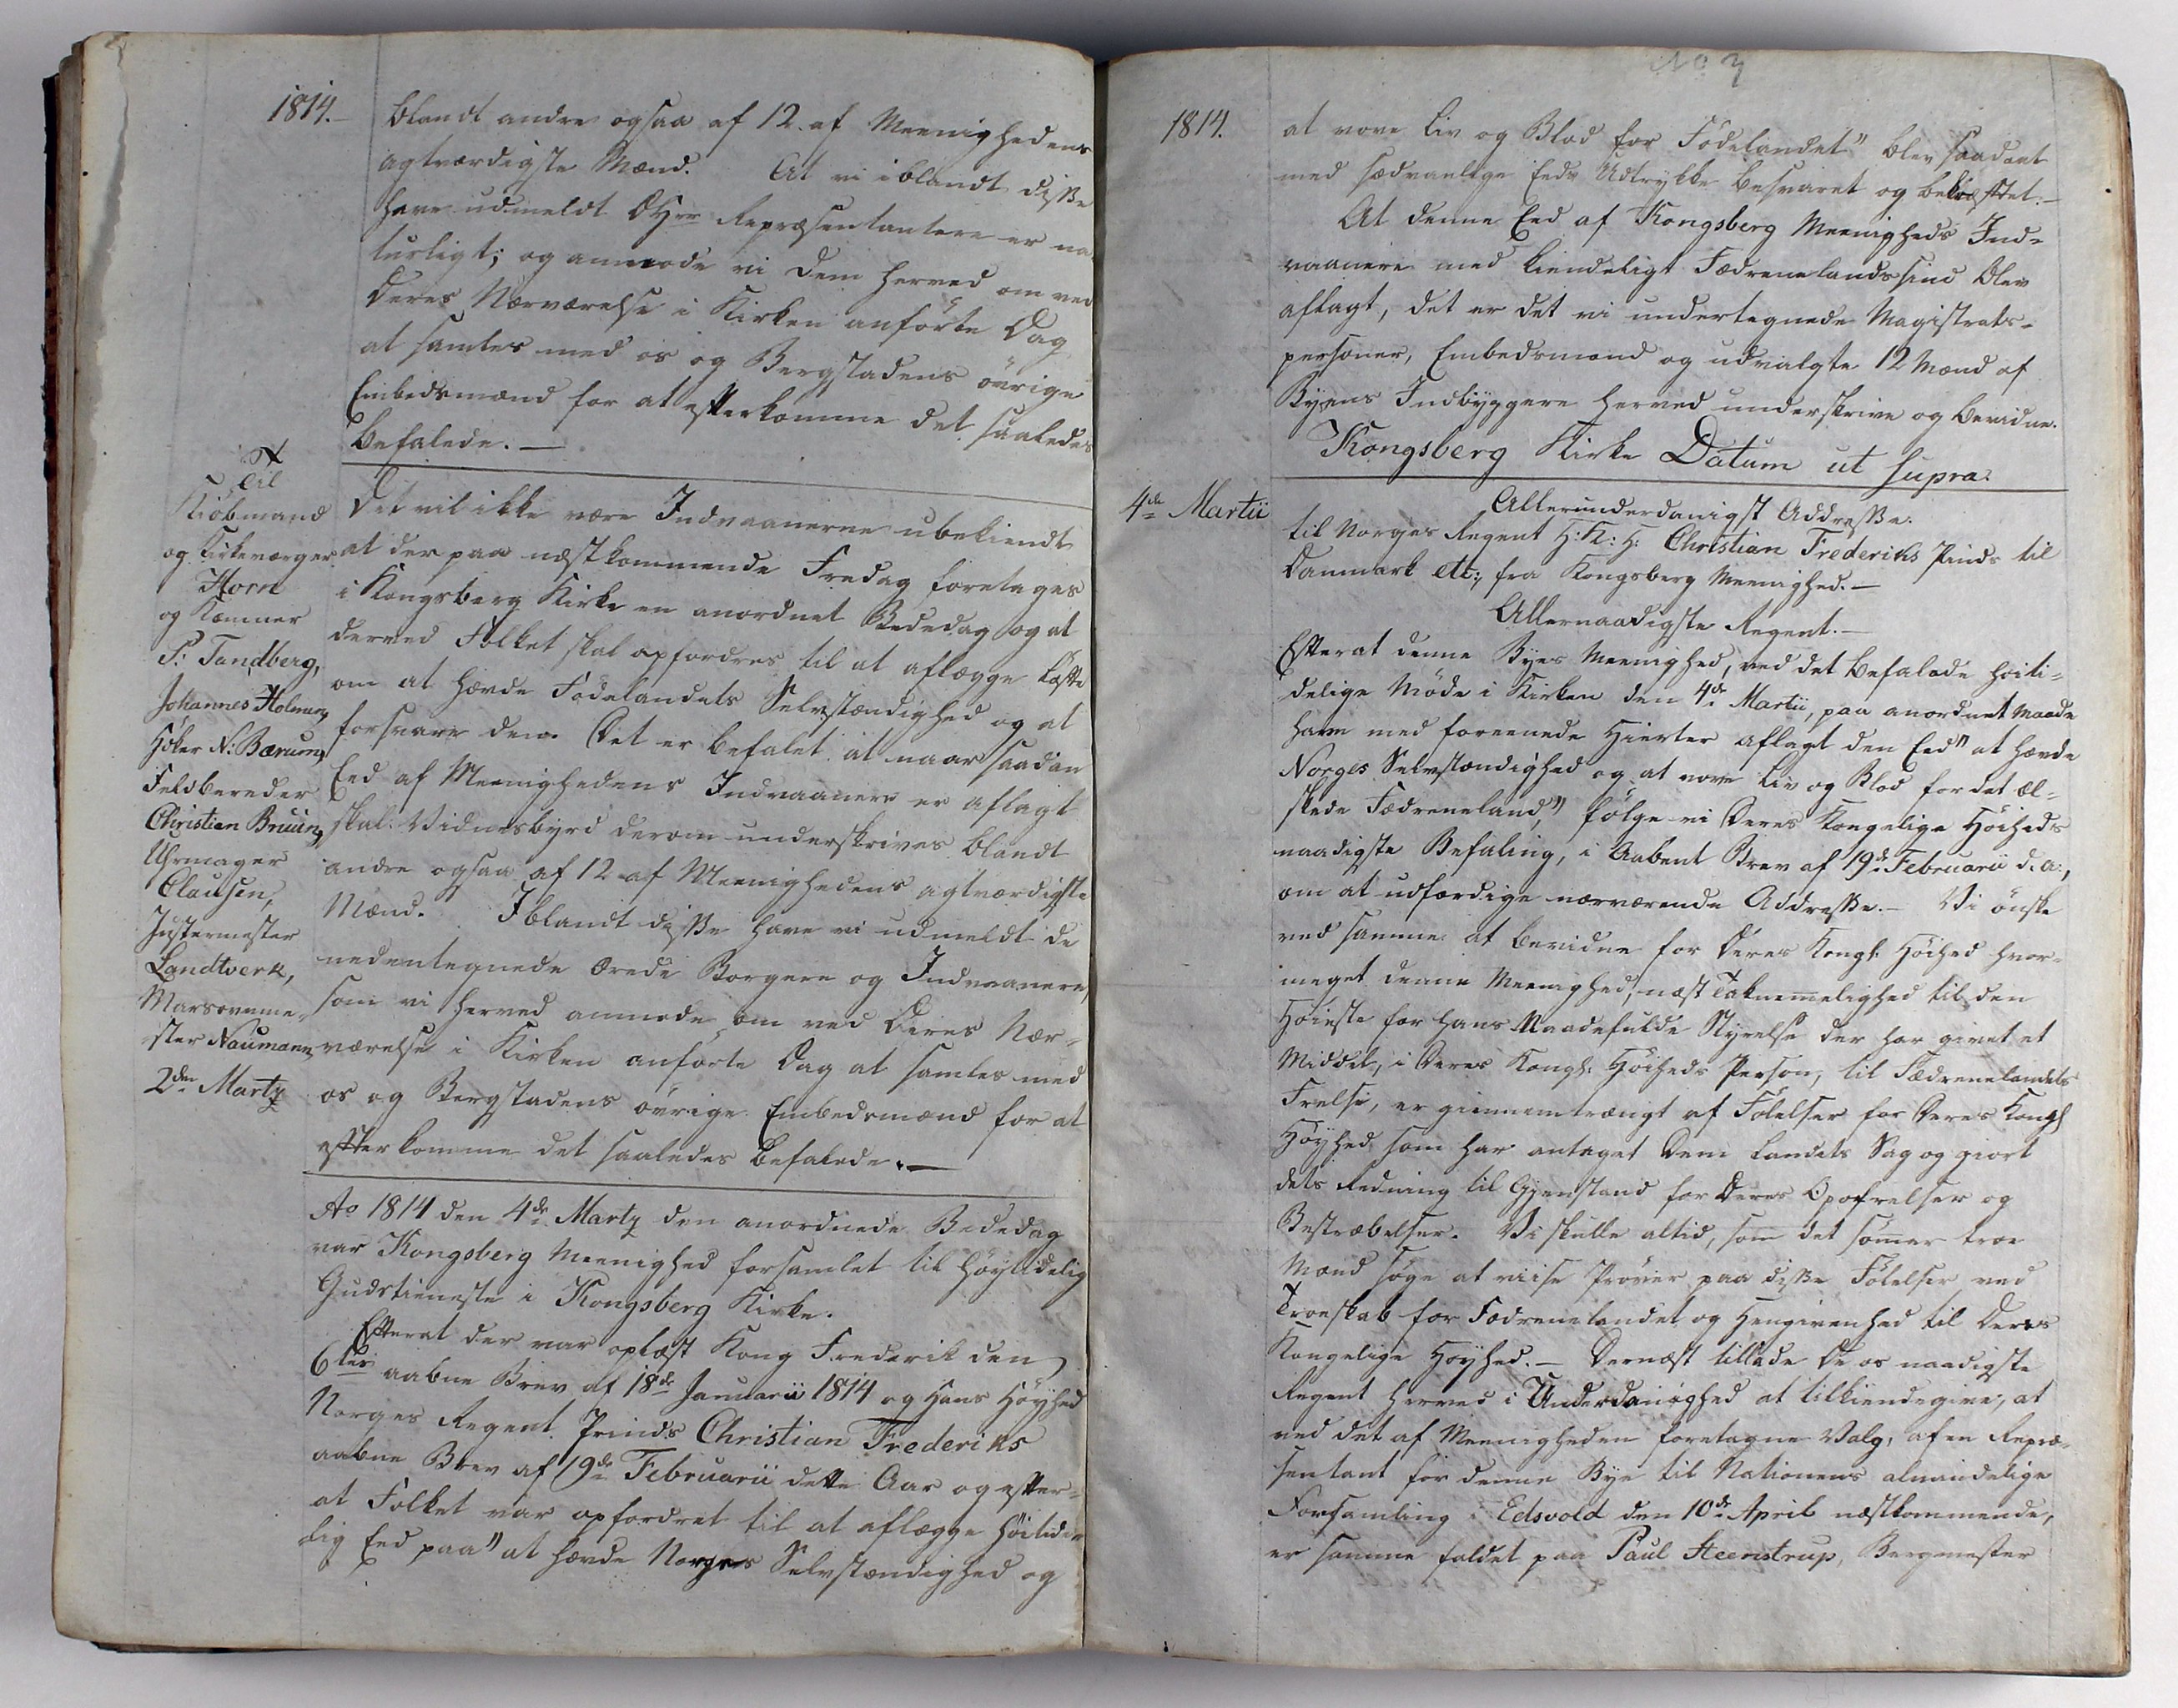 1814.–
blandt andre ogsaa af 12. af Meenighedens
agtværdigste Mænd. At vi iblandt disse
have udmeldt DHrr Repræsentantere er na
turligt; og anmode vi dem herved om ved
deres Nærværelse i Kirken anførte Dag
at samles med os og Bergstadens øvrige
Embedsmænd for at efterkomme det saaledes
befalede. —
Til
Kiøbmand
og Kirkeværger
Horn
og Kæmner
P: Tandberg,
Johannes Holmen,
Høker N: Bærum,
Feldbereder
Christian Bruun,
Uhrmager
Clausen,
Justermester
Landtverk,
Marsovnme-
ster Naumann
2den Martz
Det vil ikke være Indvaanerne ubekiendt
at der paa næstkommende Fredag foretages
i Kongsberg Kirke en anordnet Bededag og at
derved Folket skal opfordres til at aflægge Løfte
om at hævde Fødelandets Selvstændighed og at
forsvare den. Det er befalet at naar saadan
Eed af Meenighedens Indvaanere er aflagt
skal Vidnesbyrd derom underskrives blandt
andre ogsaa af 12 af Meenighedens agtværdigste
Mænd. Iblandt disse have vi udmeldt de
nedentegnede ærede Borgere og Indvaanere,
som vi herved anmode om ved Deres Nær-
værelse i Kirken anførte Dag at samles med
os og Bergstadens øvrige Embedsmænd for at
efterkomme det saaledes befalede. —
Ao 1814 den 4de Martz den anordnede Bededag
var Kongsberg Meenighed forsamlet til høytidelig
Gudstieneste i Kongsberg Kirke.
Efterat der var oplæst Kong Frederik den
6tes aabne Brev af 18de Januarii 1814 og Hans Høyhed
Norges Regent Prinds Christian Frederiks
aabne Brev af 19de Februarii dette Aar og efter-
at Folket var opfordret til at aflægge høitide
lig Eed paa" at hævde Norges Selvstændighed og
No 3
1814.
at vove Liv og Blod for Fødelandet" blev saadant
med sædvanlige Eeds Udtrykke besvaret og bekræftet. —
At denne Eed af Kongsberg Meenigheds Ind-
vaanere med kiendeligt Fædrenelandssind blev
aflagt, det er det vi undertegnede Magistrats-
personer, Embedsmænd og udvalgte 12 Mænd af
Byens Indbyggere herved underskrive og bevidne.
Kongsberg Kirke Datum ut supra.
4de Martii
Allerunderdanigst Addresse.
til Norges Regent H: K: H: Christian Frederiks Prinds til
Danmark etc:, fra Kongsberg Meenighed. —
Allernaadigste Regent. —
Efterat denne Byes Meenighed, ved det befalede høiti-
delige Møde i Kirken den 4de Martii, paa anordnet Maade
have med foreenede Hierter aflagt den Eed" at hævde
Norges Selvstændighed og at vove Liv og Blod for det el-
skede Fædreneland," følge vi Deres Kongelige Høiheds
naadigste Befaling, i Aabent Brev af 19de Februarii d. a:,
om at udfærdige nærværende Addresse. — Vi ønske
ved samme at bevidne for Deres Kongl: Høihed hvor-
meget denne Meenighed, næst Taknemelighed til den
Høieste for hans Naadefulde Styrelse der har givet et
Middel, i Deres Kongl: Høiheds Person, til Fædrenelandets
Frelse, er giennemtrængt af Følelser for Deres Kongl
Høyhed som har antaget Dem Landets Sag og giort
dets Redning til Gjenstand for Deres Opofrelser og
Bestræbelser. Vi skulle altid, som det sømer troe
Mænd søge at viise Prøver paa disse Følelser ved
Troeskab for Fædrenelandet og Hengivenhed til Deres
Kongelige Høyhed. — Dernæst tillade De os naadigste
Regent herved i Underdanighed at tilkiendegive, at
ved det af Meenigheden foretagne Valg, af en Repræ-
sentant for denne Bye til Nationens almindelige
Forsamling i Edsvold den 10de April næstkommende,
er samme faldet paa Paul Steenstrup, Bergmester